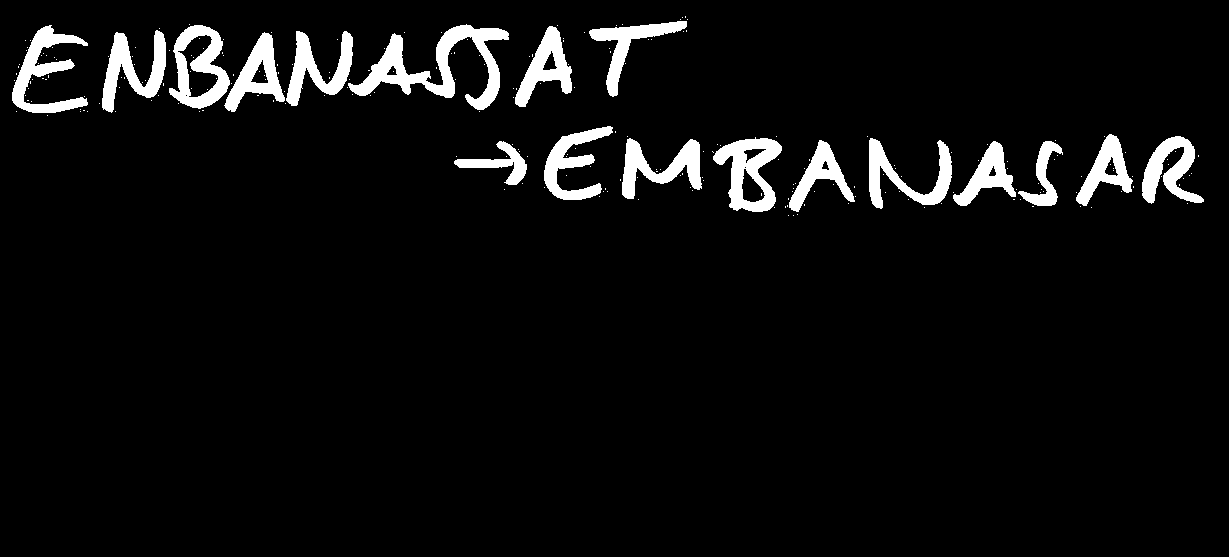 ENBANASSAT
→EMBANASAR